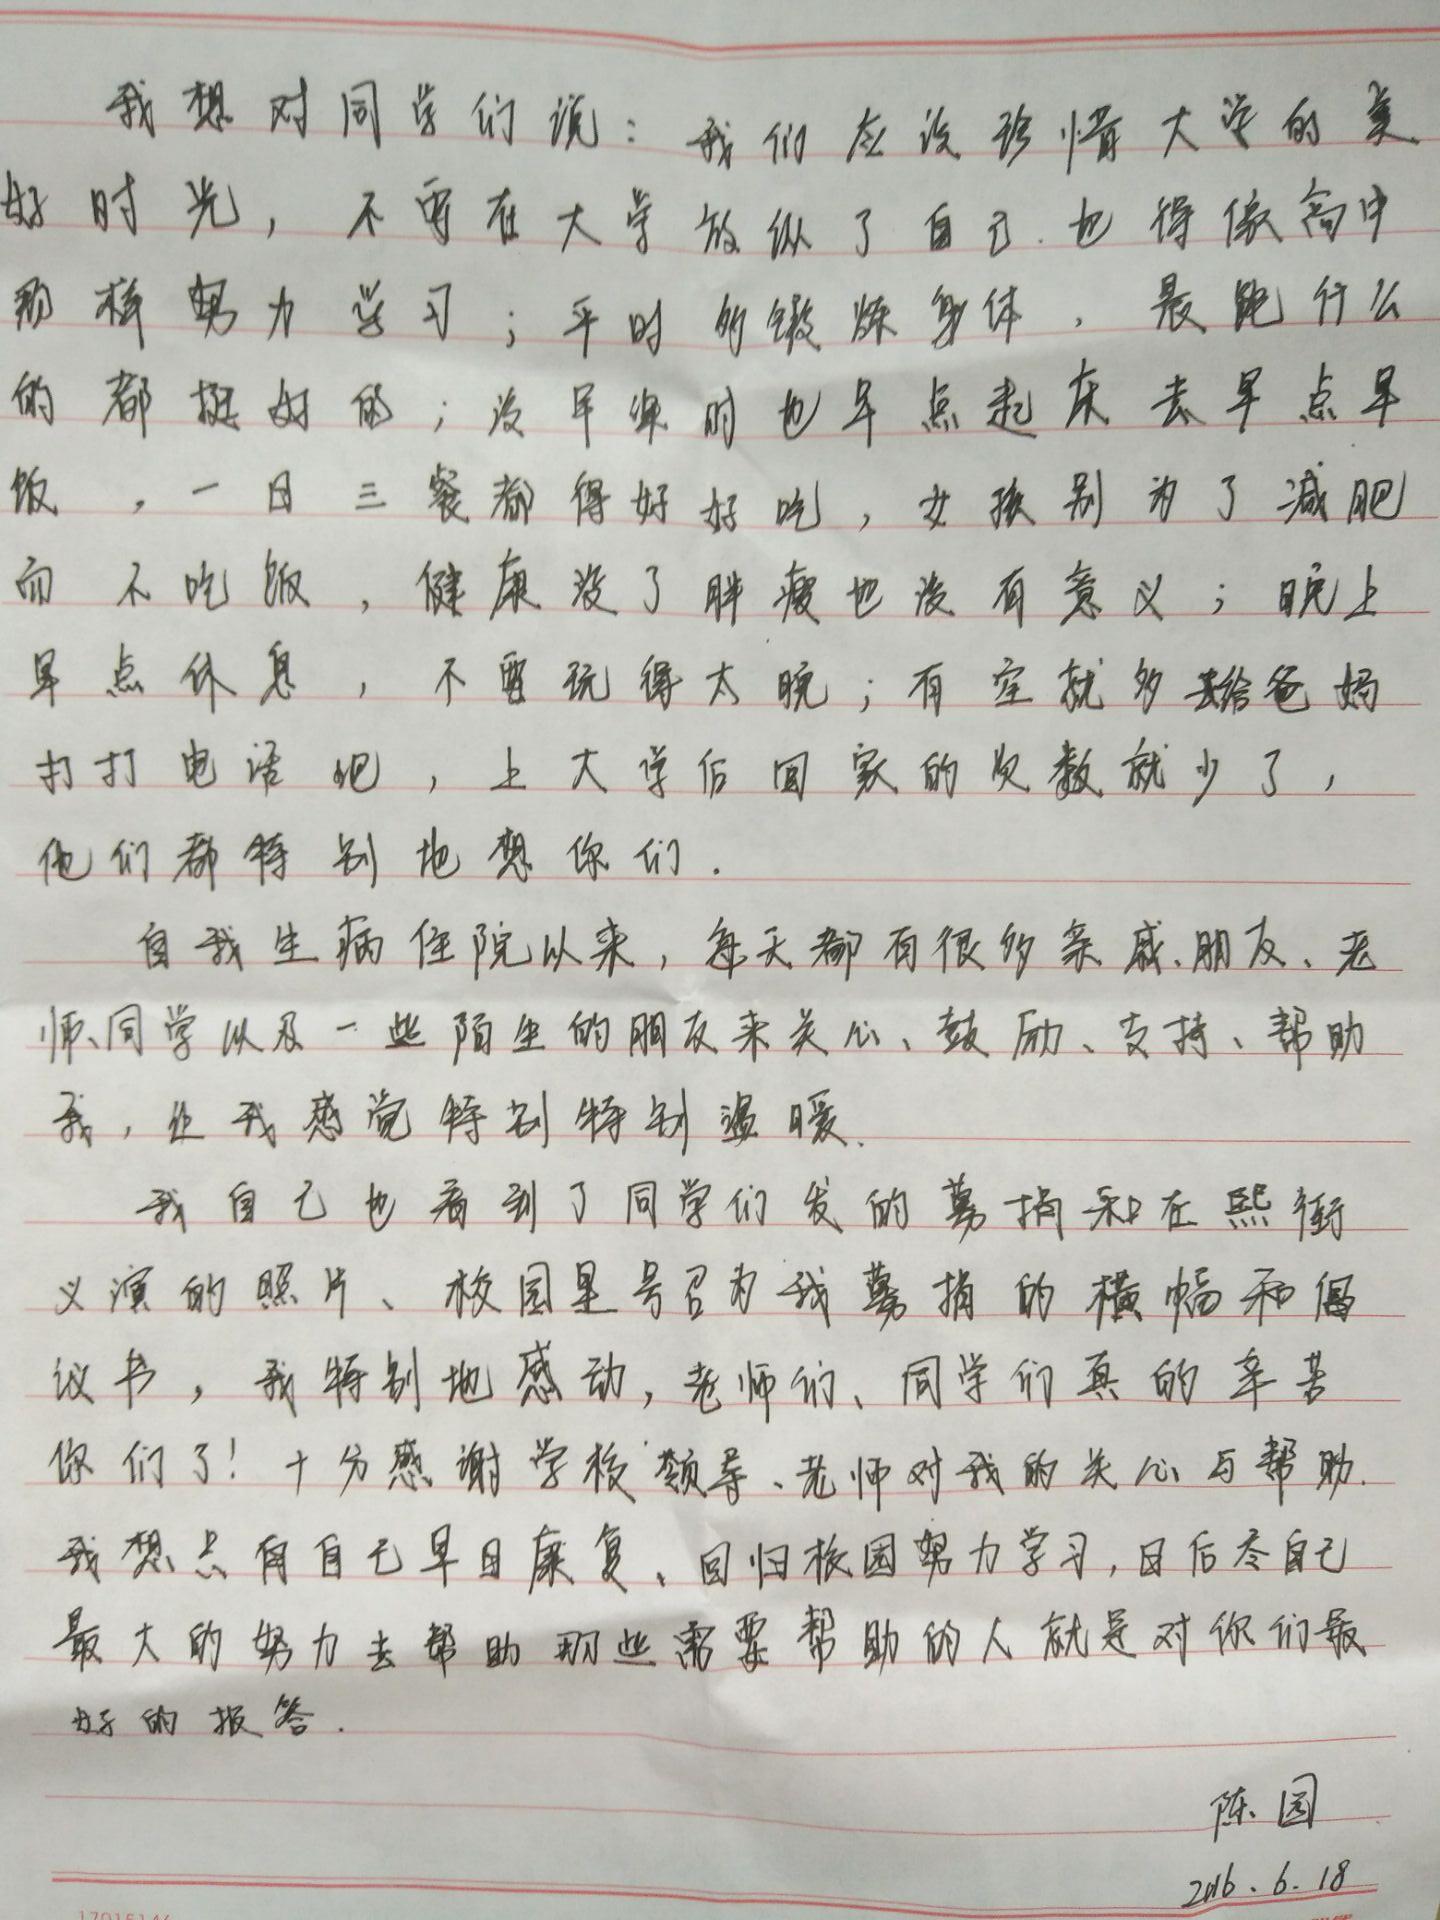 我想对同学们说：我们应该珍惜大学的美
好时光，不要在大学放纵了自己.也得像高中
那样努力学习；平时多锻炼身体，晨跑什么
的都挺好的；没早课时也早点起床去早点早
饭，一日三餐都得好好吃，女孩别为了减肥
而不吃饭，健康没了胖瘦也没有意义；晚上
早点休息，不要玩得太晚；有空就多去给爸妈
打打电话吧，上大学后回家的次数就少了，
他们都特别地想你们.
自我生病住院以来，每天都有很多亲戚、朋友、老
师、同学以及一些陌生的朋友来关心、鼓励、支持、帮助
我，让我感觉特别特别温暖.
我自己也看到了同学们发的募捐和在熙街
义演的照片、校园里号召为我募捐的横幅和倡
议书，我特别地感动，老师们、同学们真的辛苦
你们了！十分感谢学校领导、老师对我的关心与帮助.
我想只有自己早日康复、回归校园努力学习，日后尽自己
最大的努力去帮助那些需要帮助的人就是对你们最
好的报答.
陈园
2016.6.18